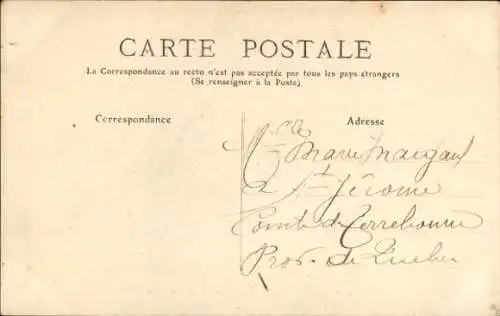 CARTE POSTALE
La Correspondance au recto n'est pas acceptée par tous les pays étrangers
(Se renseigner à la Poste)
Correspondance
Adresse
Mlle Marie
à St Jérome
Comté de Terrebonne
Prov. de Quebec